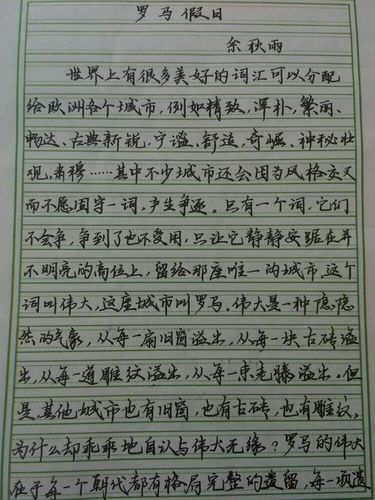 罗马假日
余秋雨
世界上有很多美好的词汇可以分配
给欧洲各个城市，例如精致，浑朴，繁丽、
畅达、古典新锐，宁谧、舒适、奇崛、神秘壮
观，肃穆……其中不少城市还会因为风格交叉
而不愿固守一词，产生争逐。只有一个词，它们
不会争，争到了也不受用，只让它静静安踞在并
不明亮的高位上，留给那座唯一的城市，这个
词叫伟大，这座城市叫罗马。伟大是一种隐隐
然的气象，从每一扇旧窗溢出，从每一块古砖溢
出，从每一道雕纹溢出，从每一束老藤溢出。但
是，其他城市也有旧窗，也有古砖，也有雕纹，
为什么却乖乖地自认与伟大无缘？罗马的伟大
在于每一个朝代都有格局完整的遗留，每一项遗